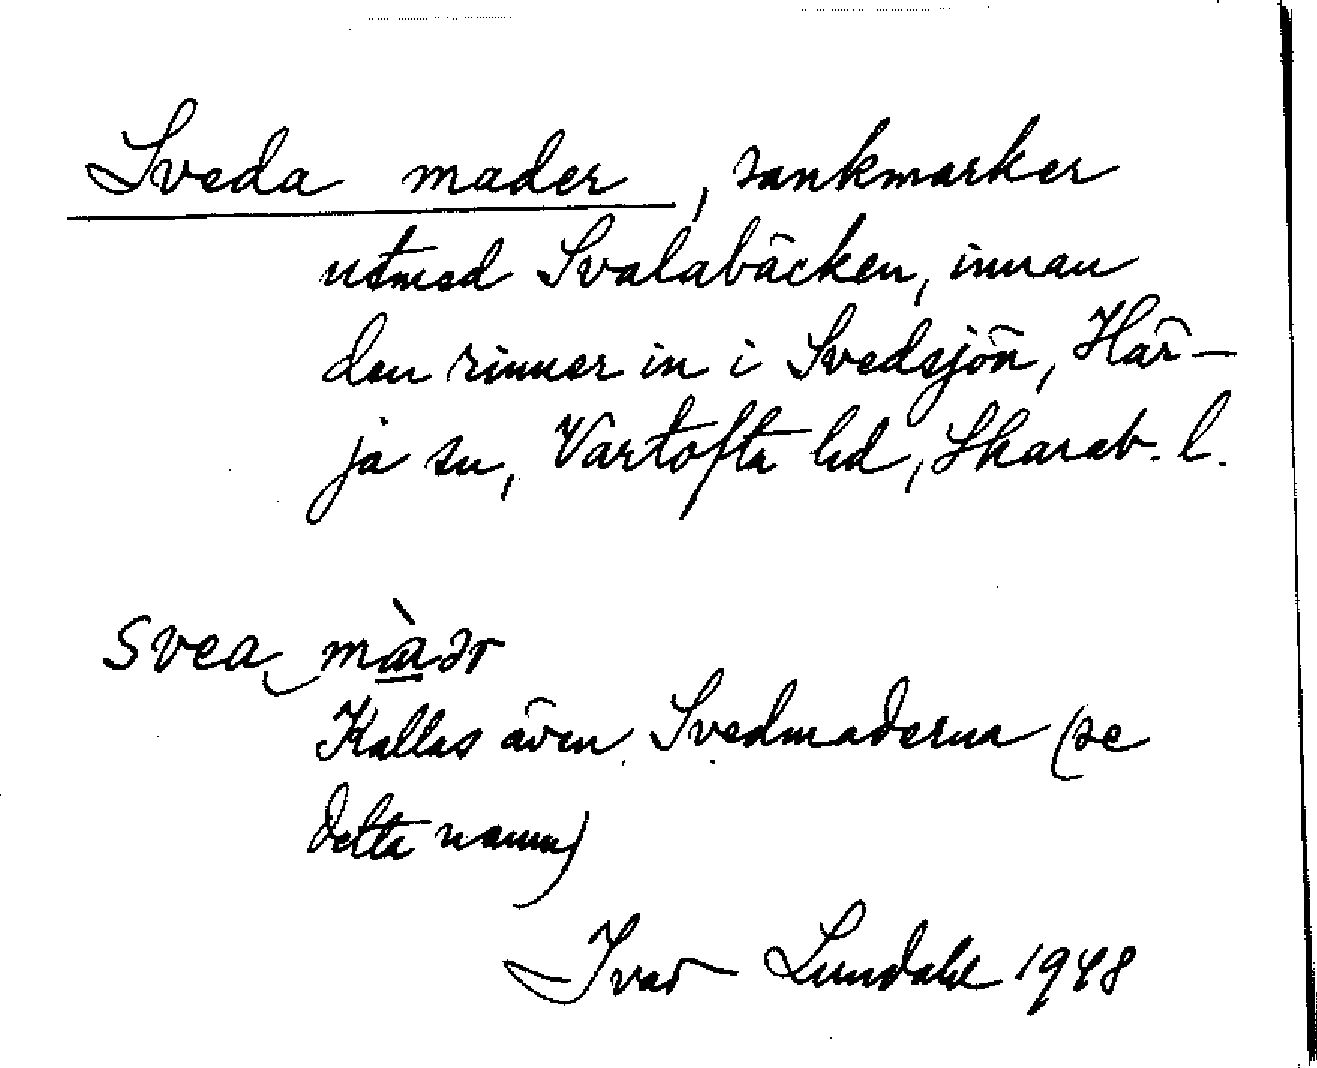 Sveda mader, sankmarker
utmed Svalabäcken, innan
den rinner in i Svedsjön, Här-
ja sn, Vartofta hd, Skarab. l.
svea màər
Kallas även Svedmaderna (se
detta namn)
Ivar Lundahl 1948